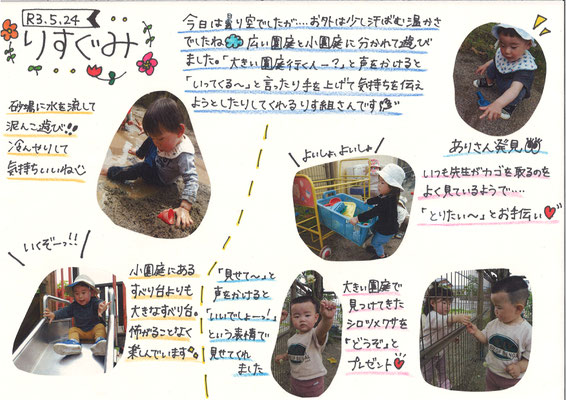 R3.5.24
りすぐみ
今日は曇り空でしたが….お外は少し汗ばむ温かさ
でしたね 広い園庭と小園庭に分かれて遊び
ました。「大きい園庭行く人ー?」と声をかけると
「いってくる〜」と言ったり手を上げて気持ちを伝え
ようとしたりしてくれるりす組さんです
砂場に水を流して
泥んこ遊び!!
冷んやりして
気持ちいいね
ありさん発見
よいしょ、よいしょ
いつも先生がカゴを取るのを
よく見ているようで….
「とりたい〜」とお手伝い
いくぞーっ!!
小園庭にある
すべり台よりも
大きなすべり台。
怖がることなく
楽しんでいます
「見せて〜」と
声をかけると
「いいでしょーっ!」
という表情で
見せてくれ
ました
大きい園庭で
見つけてきた
シロツメクサを
「どうぞ」と
プレゼント